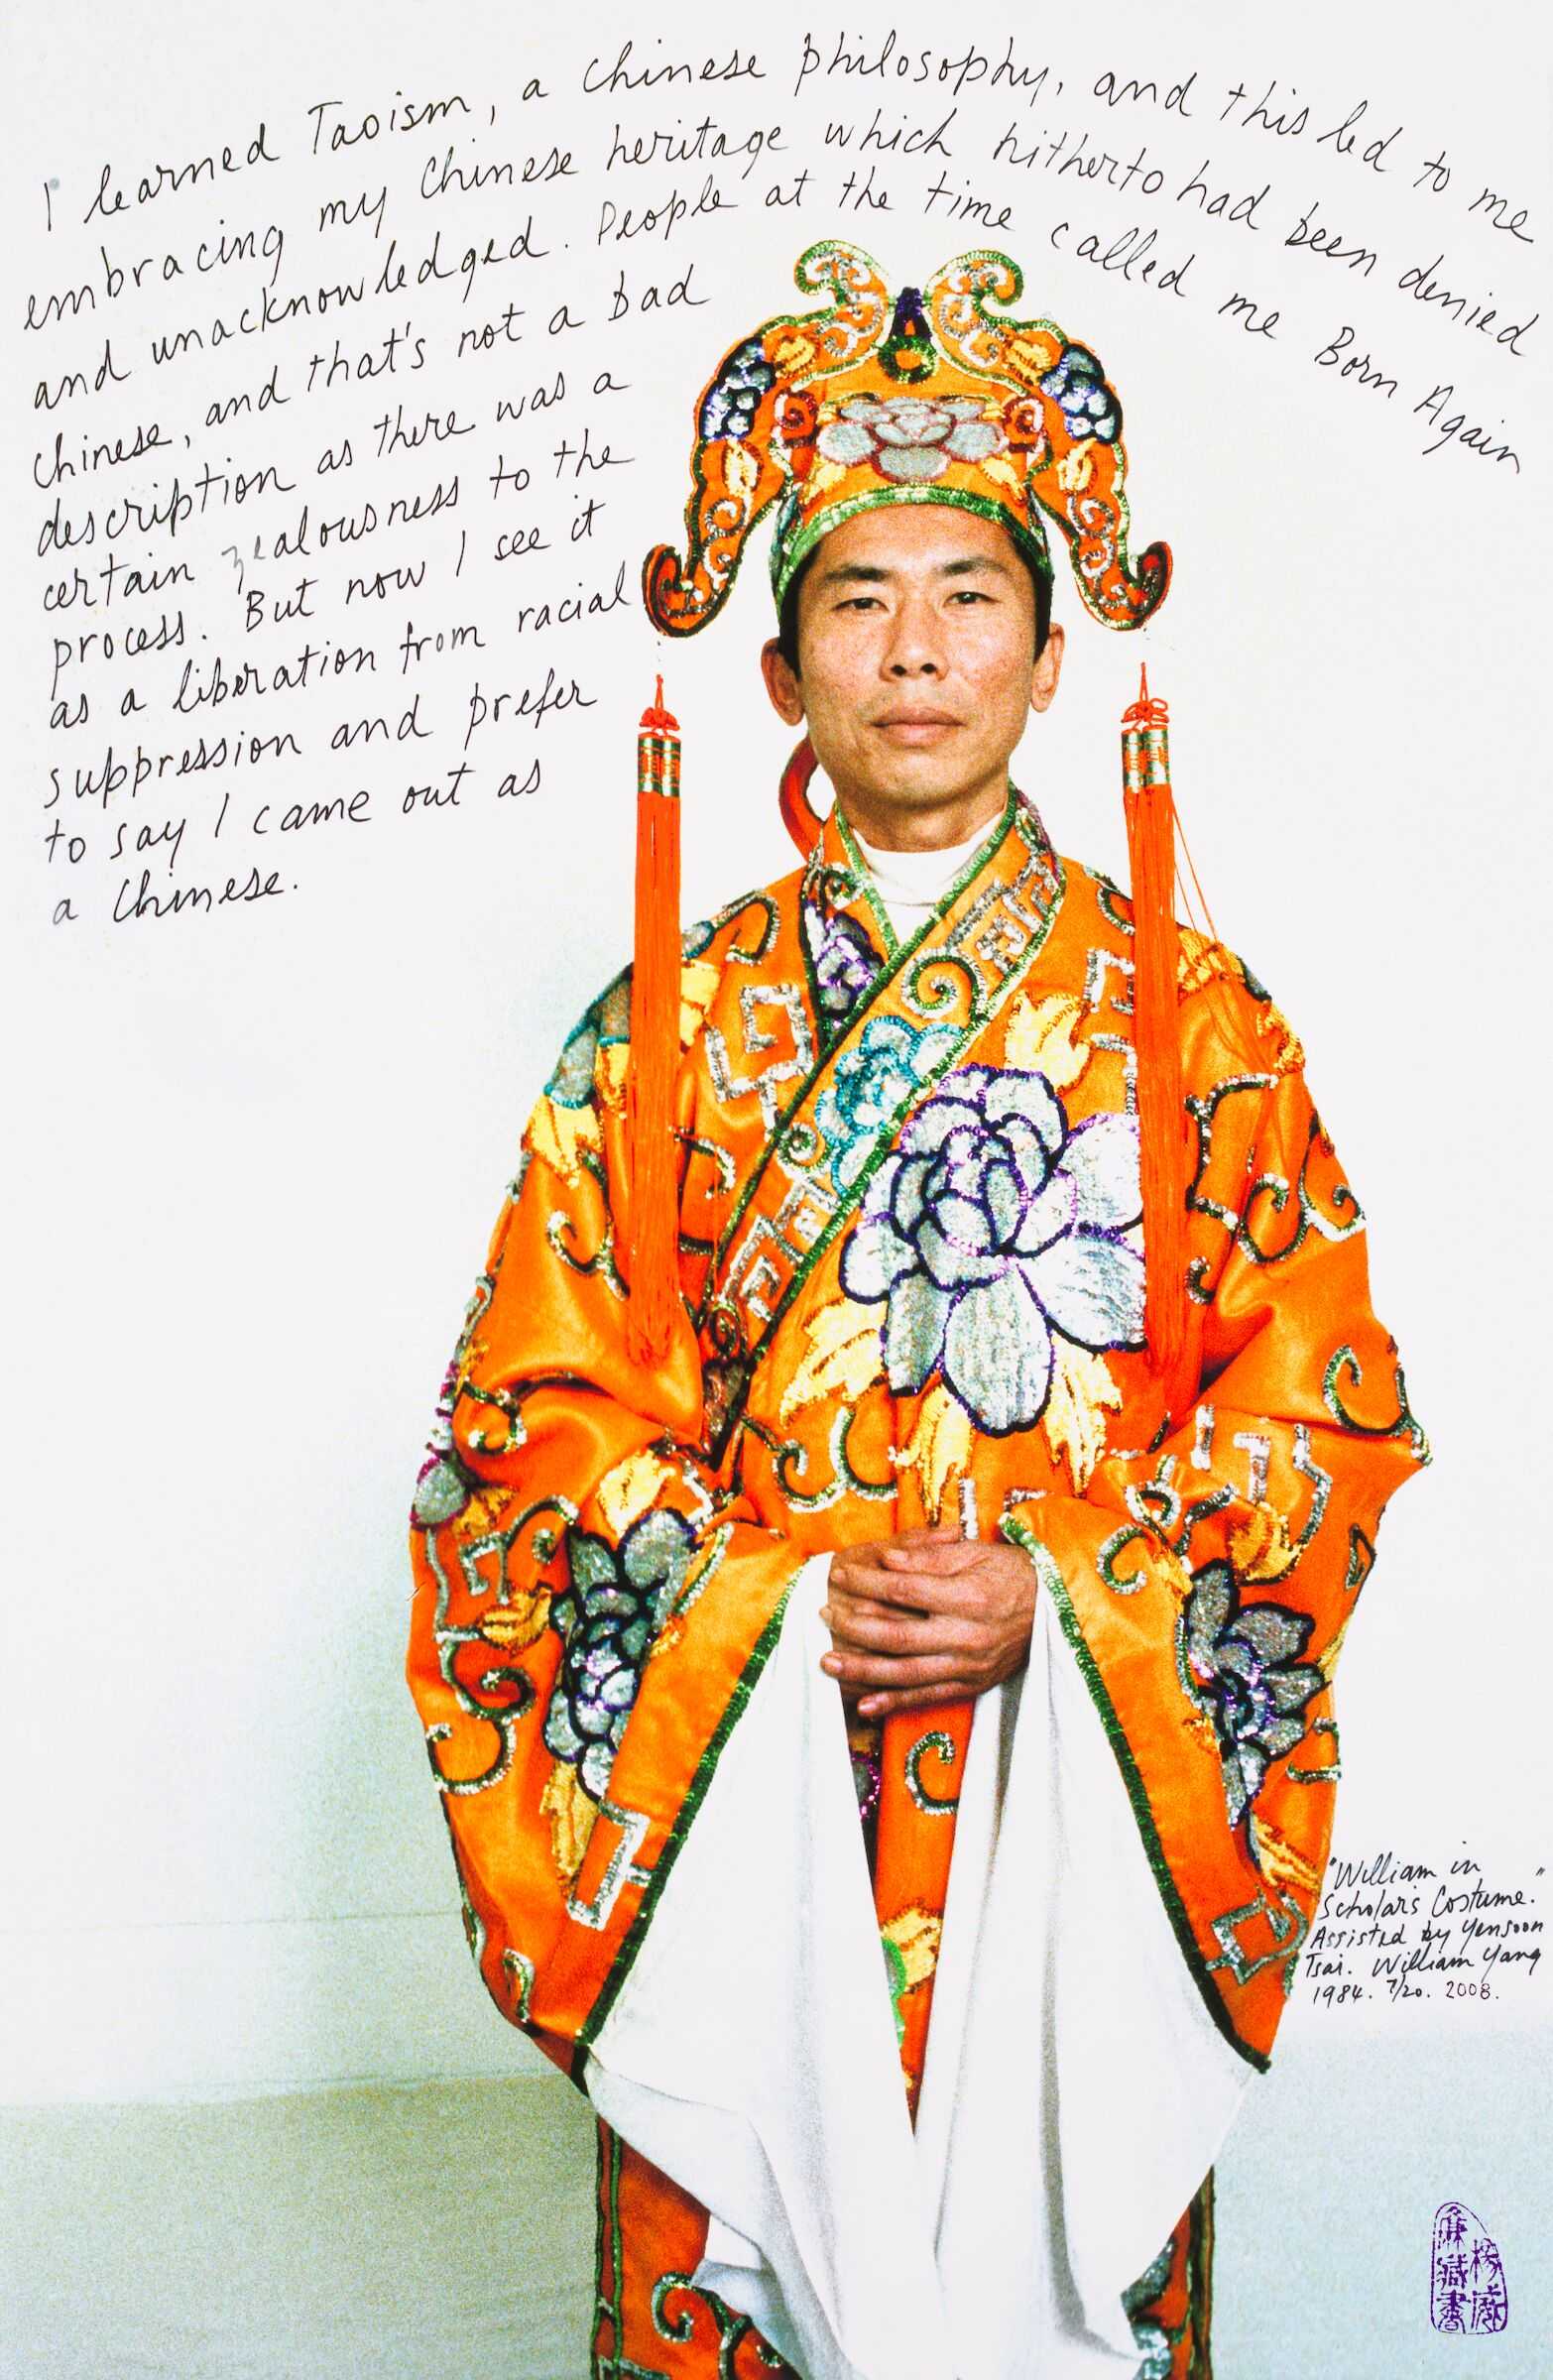 I learned Taoism, a Chinese philosophy, and this led to me
embracing my Chinese heritage which hitherto had been denied
and unacknowledged. People at the time called me Born Again
Chinese, and that's not a bad
description as there was a
certain zealousness to the
process. But now I see it
as a liberation from racial
suppression and prefer
to say I came out as
a Chinese.
"William in
Scholar's Costume."
Assisted by Yensoon
Tsai. William Yang
1984. 7/20. 2008.